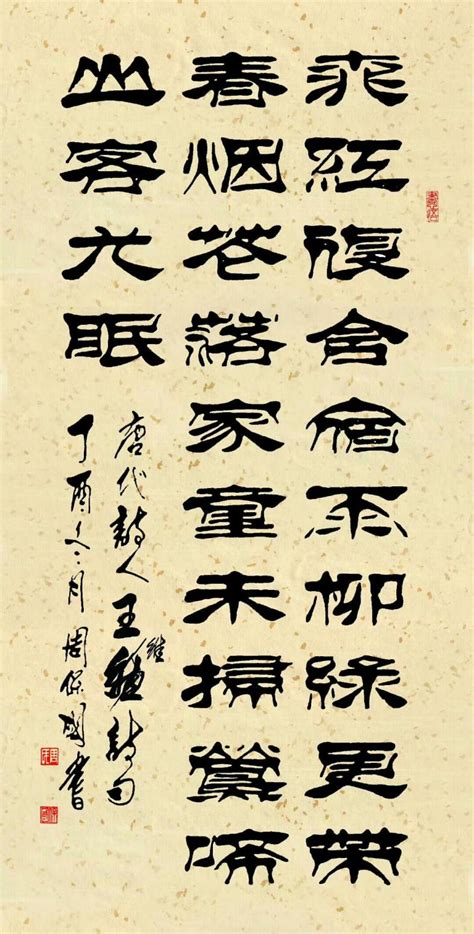 桃紅復含宿雨柳綠更帶
春烟花落家童未掃鶯啼
山客尤眠
唐代詩人王維詩句
丁酉冬月周保國書